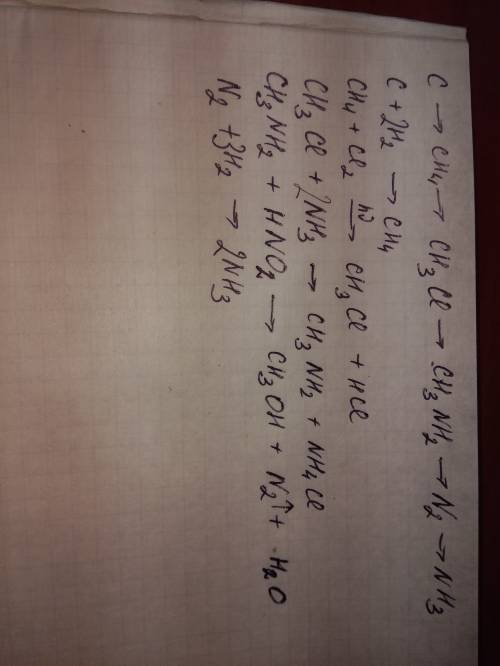 C → CH₄ → CH₃Cl → CH₃NH₂ → N₂ → NH₃
C + 2H₂ → CH₄
CH₄ + Cl₂ →hν CH₃Cl + HCl
CH₃Cl + 2NH₃ → CH₃NH₂ + NH₄Cl
CH₃NH₂ + HNO₂ → CH₃OH + N₂↑ + H₂O
N₂ + 3H₂ → 2NH₃